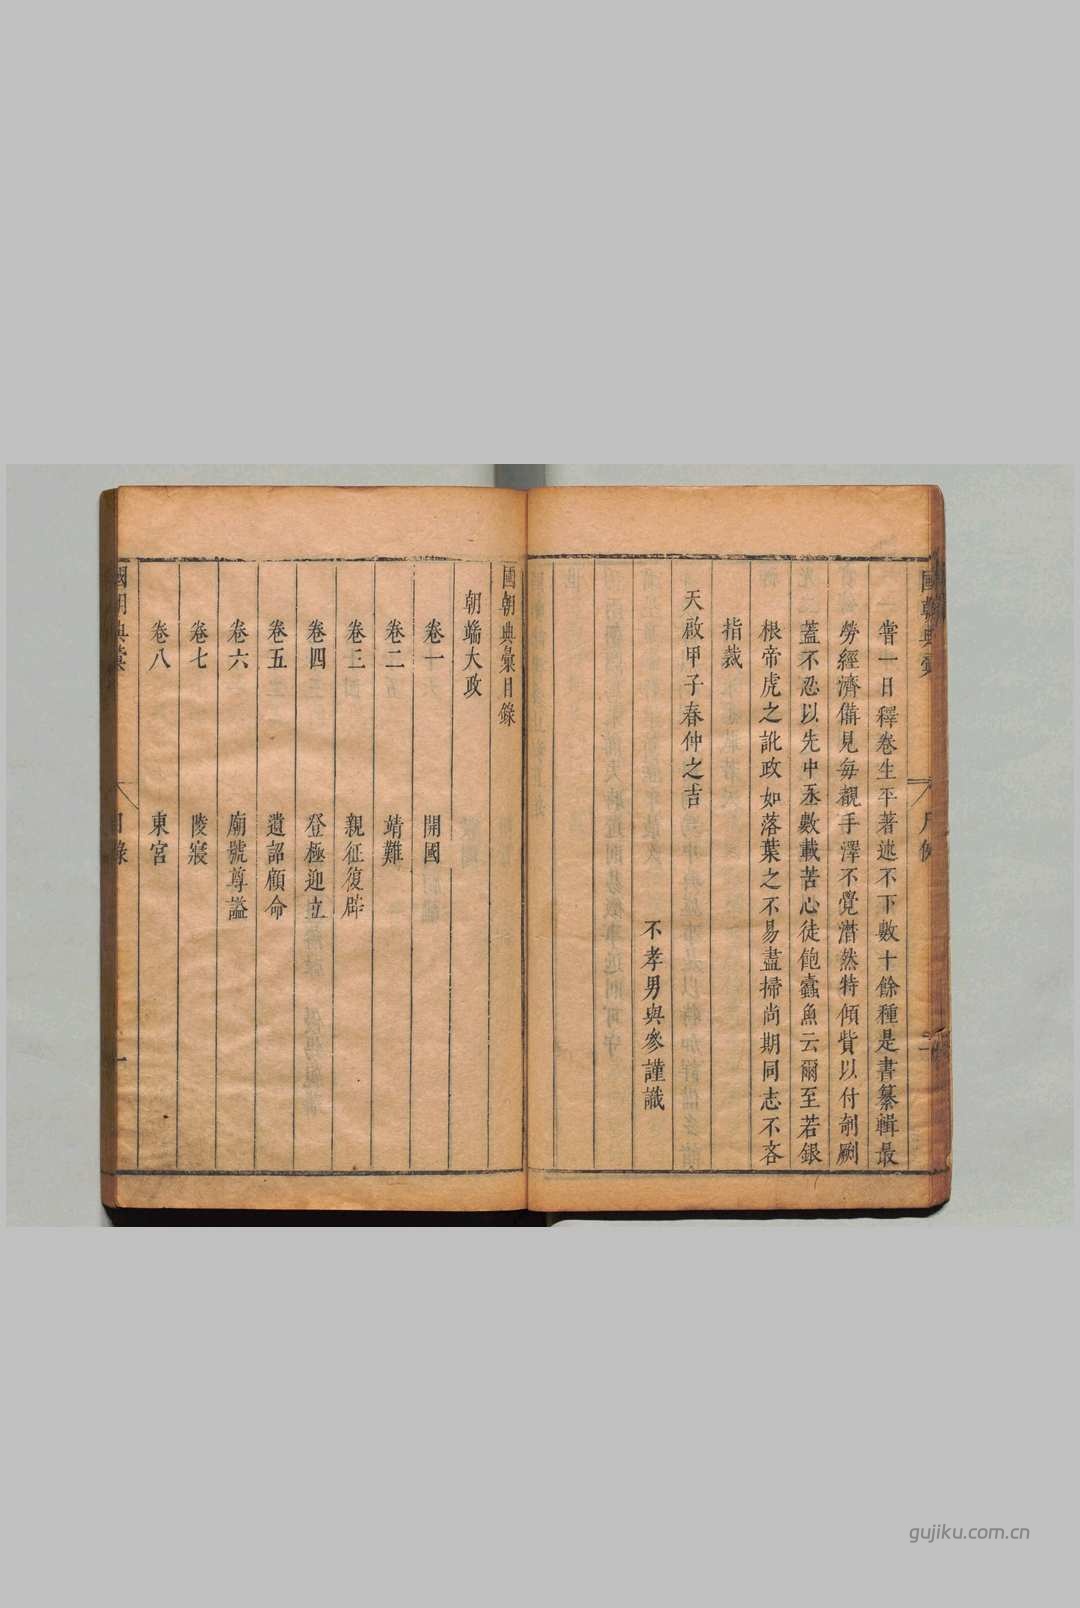 國朝典彙
凡例
二
嘗一日釋卷生平著述不下數十餘種是書纂輯最
勞經濟備見每覩手澤不覺潸然特傾貲以付剞劂
蓋不忍以先中丞數載苦心徒飽蠹魚云爾至若銀
根帝虎之訛政如落葉之不易盡掃尚期同志不吝
指裁
天啟甲子春仲之吉
不孝男與參謹識
國朝典彙目錄
朝端大政
卷一 開國
卷二 靖難
卷三 親征復辟
卷四 登極迎立
卷五 遺詔顧命
卷六 廟號尊謚
卷七 陵寢
卷八 東宮
國朝典彙
目錄
一
gujiku.com.cn